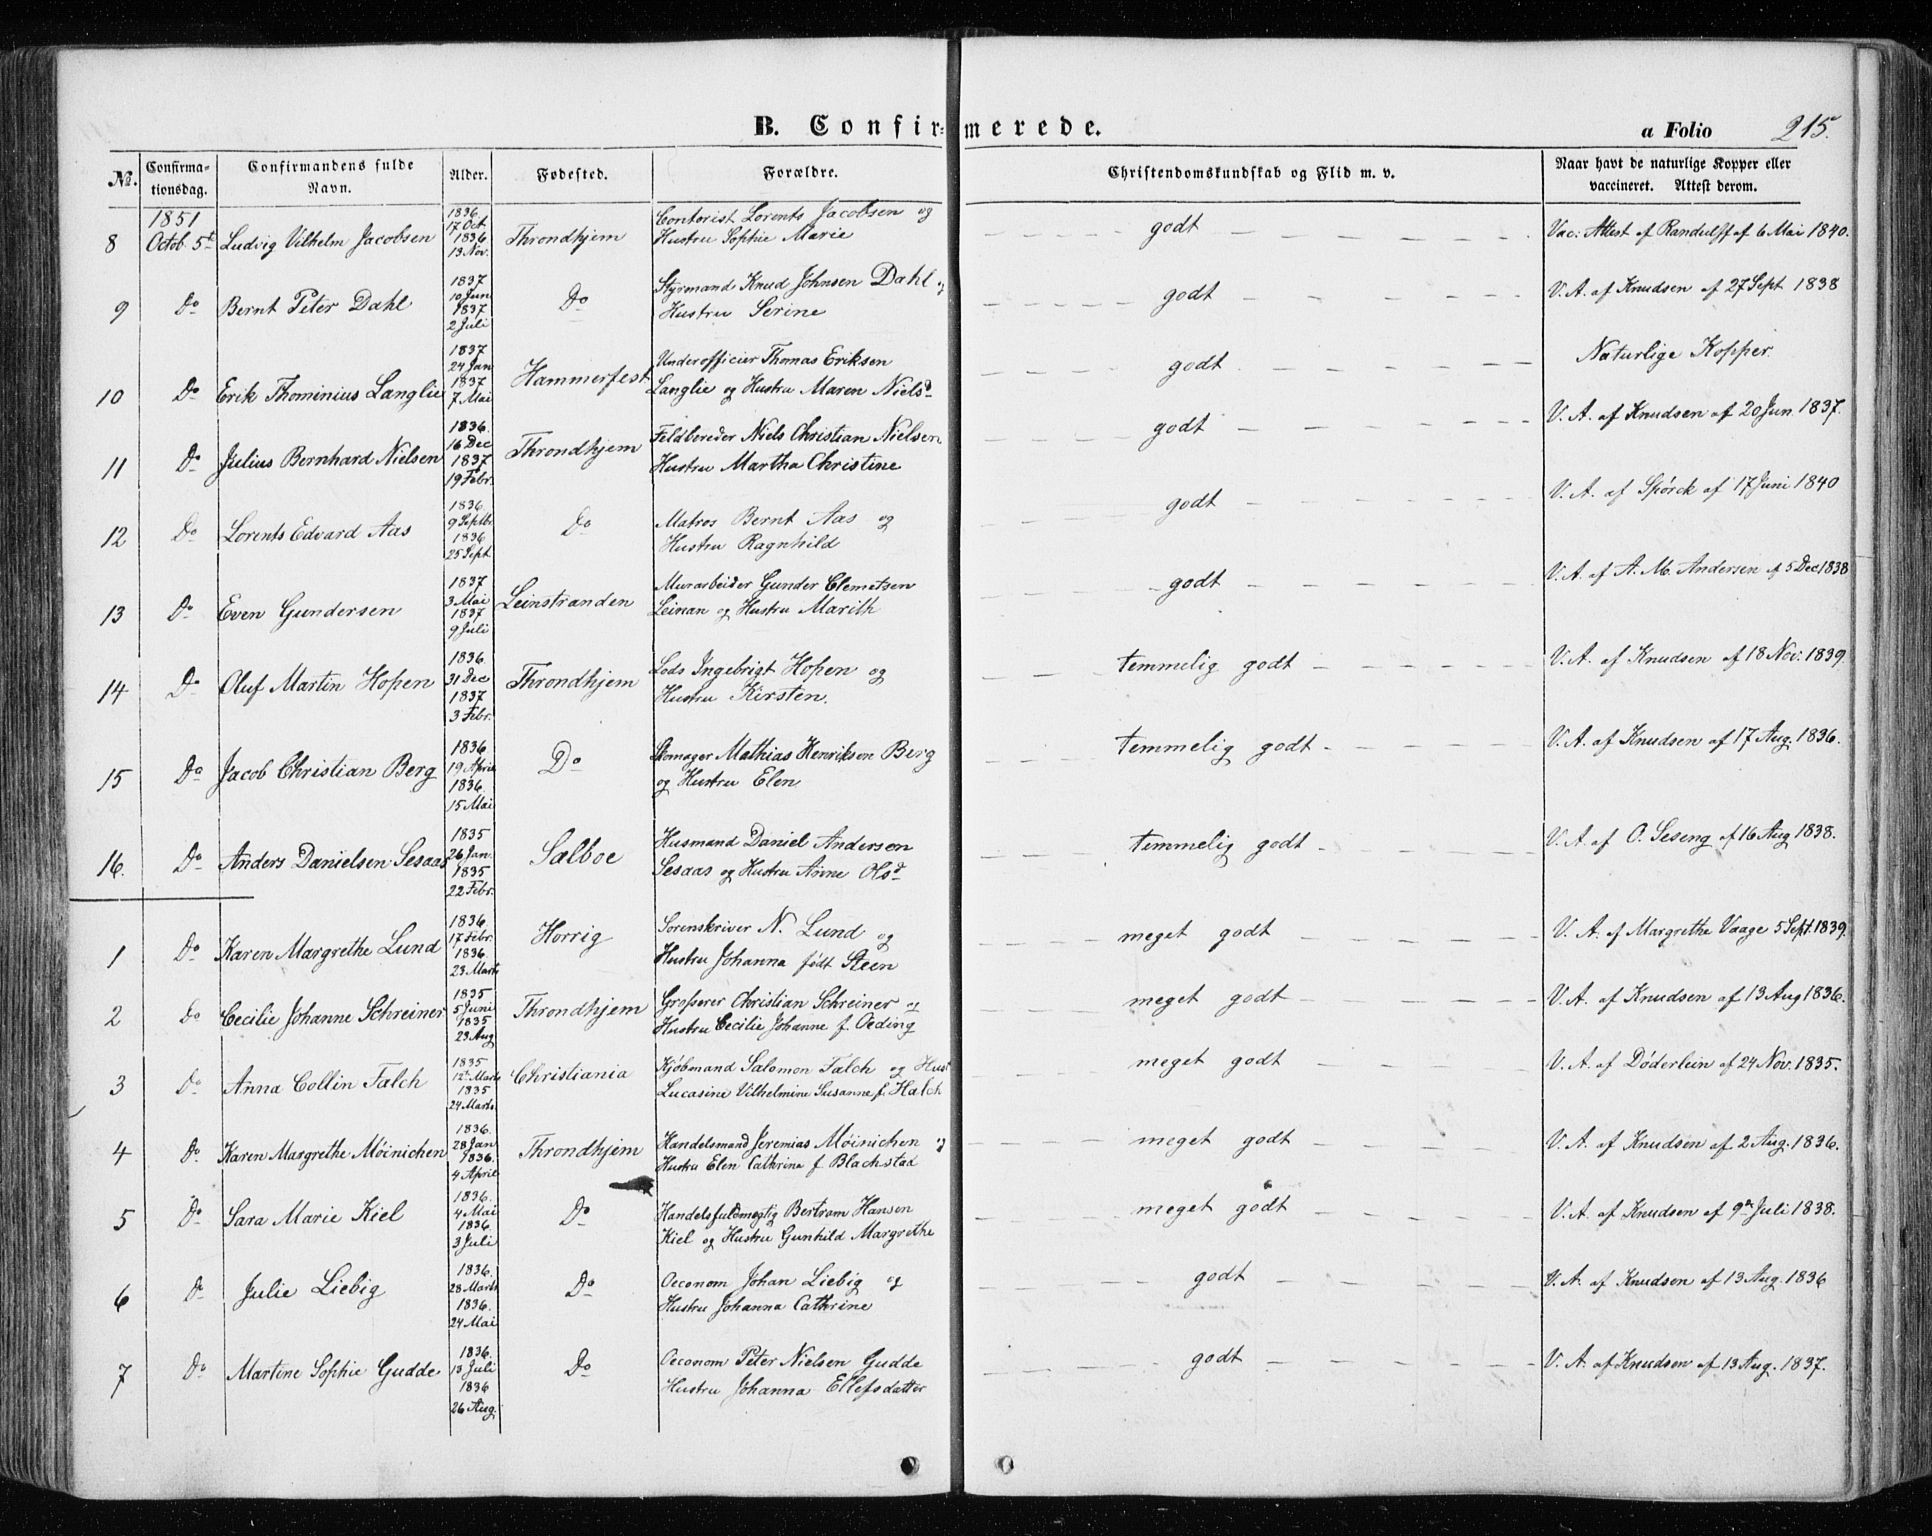 B. Confirmerede.
a Folio 215.
No. Confirmationsdag. Confirmandens fulde Navn. Alder. Fødested. Forældre. Christendomskundskab og Flid m. v. Naar havt de naturlige Kopper eller vaccineret. Attest derom.
8 1851 Octob. 5t Ludvig Vilhelm Jacobsen 1836 17 Oct. 1836 13 Nov. Throndhjem Contorist Lorents Jacobsen og Hustru Sophie Marie godt Vac: Attest af Randulff af 6 Mai 1840.
9 Do Bernt Peter Dahl 1837 10 Jun 1837 2 Juli Do Styrmand Knud Johnsen Dahl og Hustru Serine godt V. A. af Knudsen af 27 Sept 1838
10 Do Erik Thominius Langlie 1837 24 Jan 1837 7 Mai Hammerfest Underofficier Thomas Eriksen Langlie og Hustru Maren Nielsd godt Naturlige Kopper
11 Do Julius Bernhard Nielsen 1836. 16 Dec 1837 19 Febr. Throndhjem Feldbereder Niels Christian Nielsen Hustru Martha Christine godt V. A. af Knudsen af 20 Jun 1837.
12 Do Lorents Edvard Aas 1836 9 Septbr 1836 25 Sept Do Matros Bernt Aas og Hustru Ragnhild godt V. A. af Spörck af 17 Juni 1840
13 Do Even Gundersen 1837 3 Mai 1837 9 Juli Leinstranden Murarbeider Gunder Clemetsen Leinan og Hustru Marith godt V. A. af A. M. Andersen af 5 Dec 1838
14 Do Oluf Martin Hopen 1836 31 Dec 1837 3 Febr. Throndhjem Lods Ingebrigt Hopen og Hustru Kirsten. temmelig godt V. A. af Knudsen af 18 Nov. 1839
15 Do Jacob Christian Berg 1836 19 April 1836 15 Mai Do Skomager Mathias Henriksen Berg og Hustru Elen temmelig godt V. A. af Knudsen af 17 Aug. 1836.
16. Do Anders Danielsen Sesaas 1835 26 Jan. 1835 22 Febr. Sælboe Husmand Daniel Anderson Sesaas og Hustru Anne Olsd temmelig godt V. A. af O. Seseng af 16 Aug 1838.
1 Do Karen Margrethe Lund 1836 17 Febr. 1836. 23 Marts Horrig Sorenskriver N. Lund og Hustru Johanna født Steen meget godt V. A. af Margrethe Vaage 5 Sept. 1839.
2 Do Cecilie Johanne Schreiner 1835 5 Juni 1835 23 Aug Throndhjem Grosserer Christian Schreiner og Hustru Cecilie Johanne f. Oeding meget godt V. A. af Knudsen af 13 Aug 1836.
3 Do Anna Collin Falch 1835 12t Marts 1835 24 Marts. Christiania Kjöbmand Salomon Falch og Hust Lucasine Vilhelmine Susanne f. Halch meget godt V. A. af Døderlein af 24 Nov. 1835.
4 Do Karen Margrethe Möinichen 1836. 28 Jan 1836. 4 April Throndhjem Handelsmand Jeremias Möinichen og Hustru Elen Cathrine f Blachstad meget godt V. A. af Knudsen af 2 Aug. 1836.
5 Do Sara Marie Kiel 1836. 4 Mai 1836. 3 Juli Do Handelsfuldmegtig Bertram Hansen Kiel og Hustru Gunhild Margrethe meget godt V. A. af Knudsen af 9de Juli 1838.
6 Do Julie Liebig 1836. 28 Marts 1836. 24 Mai Do Oeconom Johan Liebig og Hustru Johanna Cathrine godt V. A. af Knudsen af 13 Aug. 1836
7 Do Martine Sophie Gudde 1836. 13 Juli 1836 26 Aug. Do Oeconom Peter Nielsen Gudde Hustru Johanna Ellefsdatter godt V. A. af Knudsen af 13 Aug. 1837.